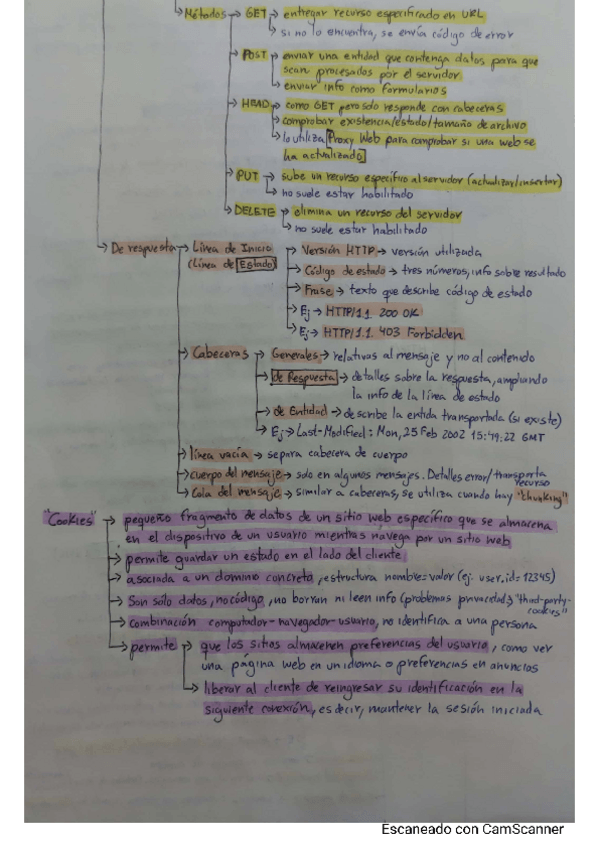 Métodos → GET → entregar recurso especificado en URL
→ si no lo encuentra, se envía código de error
→ POST → enviar una entidad que contenga datos para que
sean procesados por el servidor
→ enviar info como formularios
→ HEAD → como GET pero solo responde con cabeceras
→ comprobar existencia/estado/tamaño de archivo
→ lo utiliza Proxy Web para comprobar si una web se
ha actualizado
→ PUT → sube un recurso específico al servidor (actualizar/insertar)
→ no suele estar habilitado
→ DELETE → elimina un recurso del servidor
→ no suele estar habilitado
→ De respuesta → Línea de Inicio → Versión HTTP → versión utilizada
(Línea de Estado) → Código de estado → tres números, info sobre resultado
→ Frase → texto que describe código de estado
→ Ej → HTTP/1.1 200 OK
→ Ej → HTTP/1.1. 403 Forbidden
→ Cabeceras → Generales → relativas al mensaje y no al contenido
→ de Respuesta → detalles sobre la respuesta, ampliando
la info de la línea de estado
→ de Entidad → describe la entida transportada (si existe)
→ Ej → Last-Modified: Mon, 25 Feb 2002 15:49:22 GMT
→ línea vacía → separa cabecera de cuerpo
→ cuerpo del mensaje → solo en algunos mensajes. Detalles error/transporta
recurso
→ Cola del mensaje → similar a cabeceras, se utiliza cuando hay "chunking"
"Cookies" → pequeño fragmento de datos de un sitio web específico que se almacena
en el dispositivo de un usuario mientras navega por un sitio web
→ permite guardar un estado en el lado del cliente
→ asociada a un dominio concreto, estructura nombre=valor (ej. user.id=12345)
→ Son sólo datos, no código, no borran ni leen info (problemas privacidad) "third-party-
cookies"
→ combinación computador-navegador-usuario, no identifica a una persona
→ permite → que los sitios almacenen preferencias del usuario, como ver
una página web en un idioma o preferencias en anuncios
→ liberar al cliente de reingresar su identificación en la
siguiente conexión, es decir, mantener la sesión iniciada
Escaneado con CamScanner